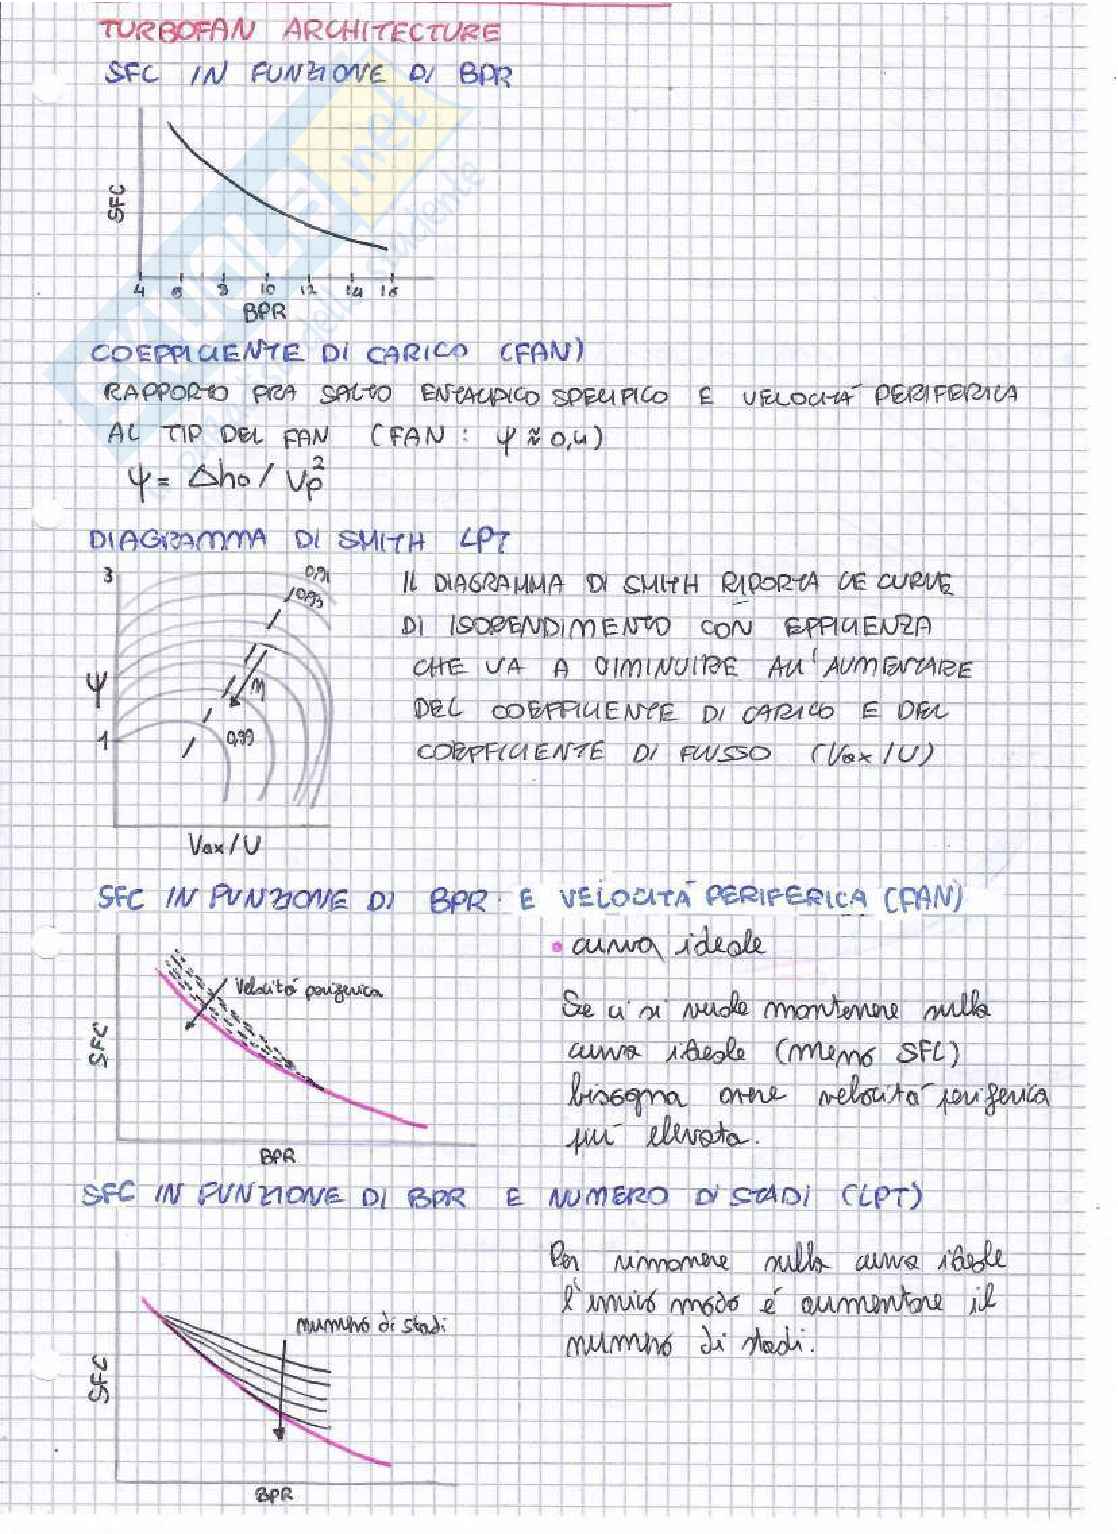 TURBOFAN ARCHITECTURE
SFC IN FUNZIONE DI BPR
SFC
4 6 8 10 12 14 16
BPR
COEFFICIENTE DI CARICO (FAN)
RAPPORTO FRA SALTO ENTALPICO SPECIFICO E VELOCITÀ PERIFERICA
AL TIP DEL FAN (FAN: ψ ≈ 0,4)
ψ = Δh0 / Vp²
DIAGRAMMA DI SMITH LPT
3
0,91
0,93
ψ
η
1
0,99
Vax/U
IL DIAGRAMMA DI SMITH RIPORTA LE CURVE
DI ISORENDIMENTO CON EFFICIENZA
CHE VA A DIMINUIRE ALL'AUMENTARE
DEL COEFFICIENTE DI CARICO E DEL
COEFFICIENTE DI FLUSSO (Vax/U)
SFC IN FUNZIONE DI BPR E VELOCITÀ PERIFERICA (FAN)
velocità periferica
SFC
BPR
• curva ideale
Se ci si vuole mantenere sulla
curva ideale (meno SFC)
bisogna avere velocità periferica
più elevata.
SFC IN FUNZIONE DI BPR E NUMERO DI STADI (LPT)
numero di stadi
SFC
BPR
Per rimanere sulla curva ideale
l'unico modo é aumentare il
numero di stadi.
SKUOLA.net